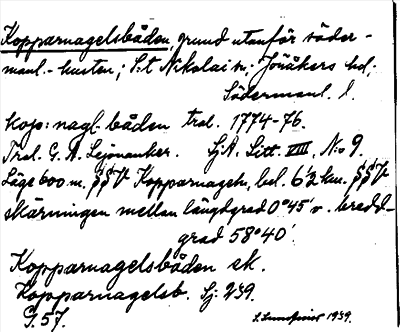 Kopparnagelsbåden, grund utanför söder-
manl.-kusten; S:t Nikolai sn; Jönåkers hd;
Södermanl. l.
Kop: nagl. båden trol. 1774-76.
Trol. G. A. Leijonanker. SjA. Litt. VIII, No 9.
Läge 600 m. SSV Kopparnageln, bel. 6½ km. SSV
skärningen mellan längdgrad 0°45' v. bredd-
grad 58°40'
Kopparnagelsbåden ek.
Kopparnagelsb. Sj: 239.
G. 57.
1939.